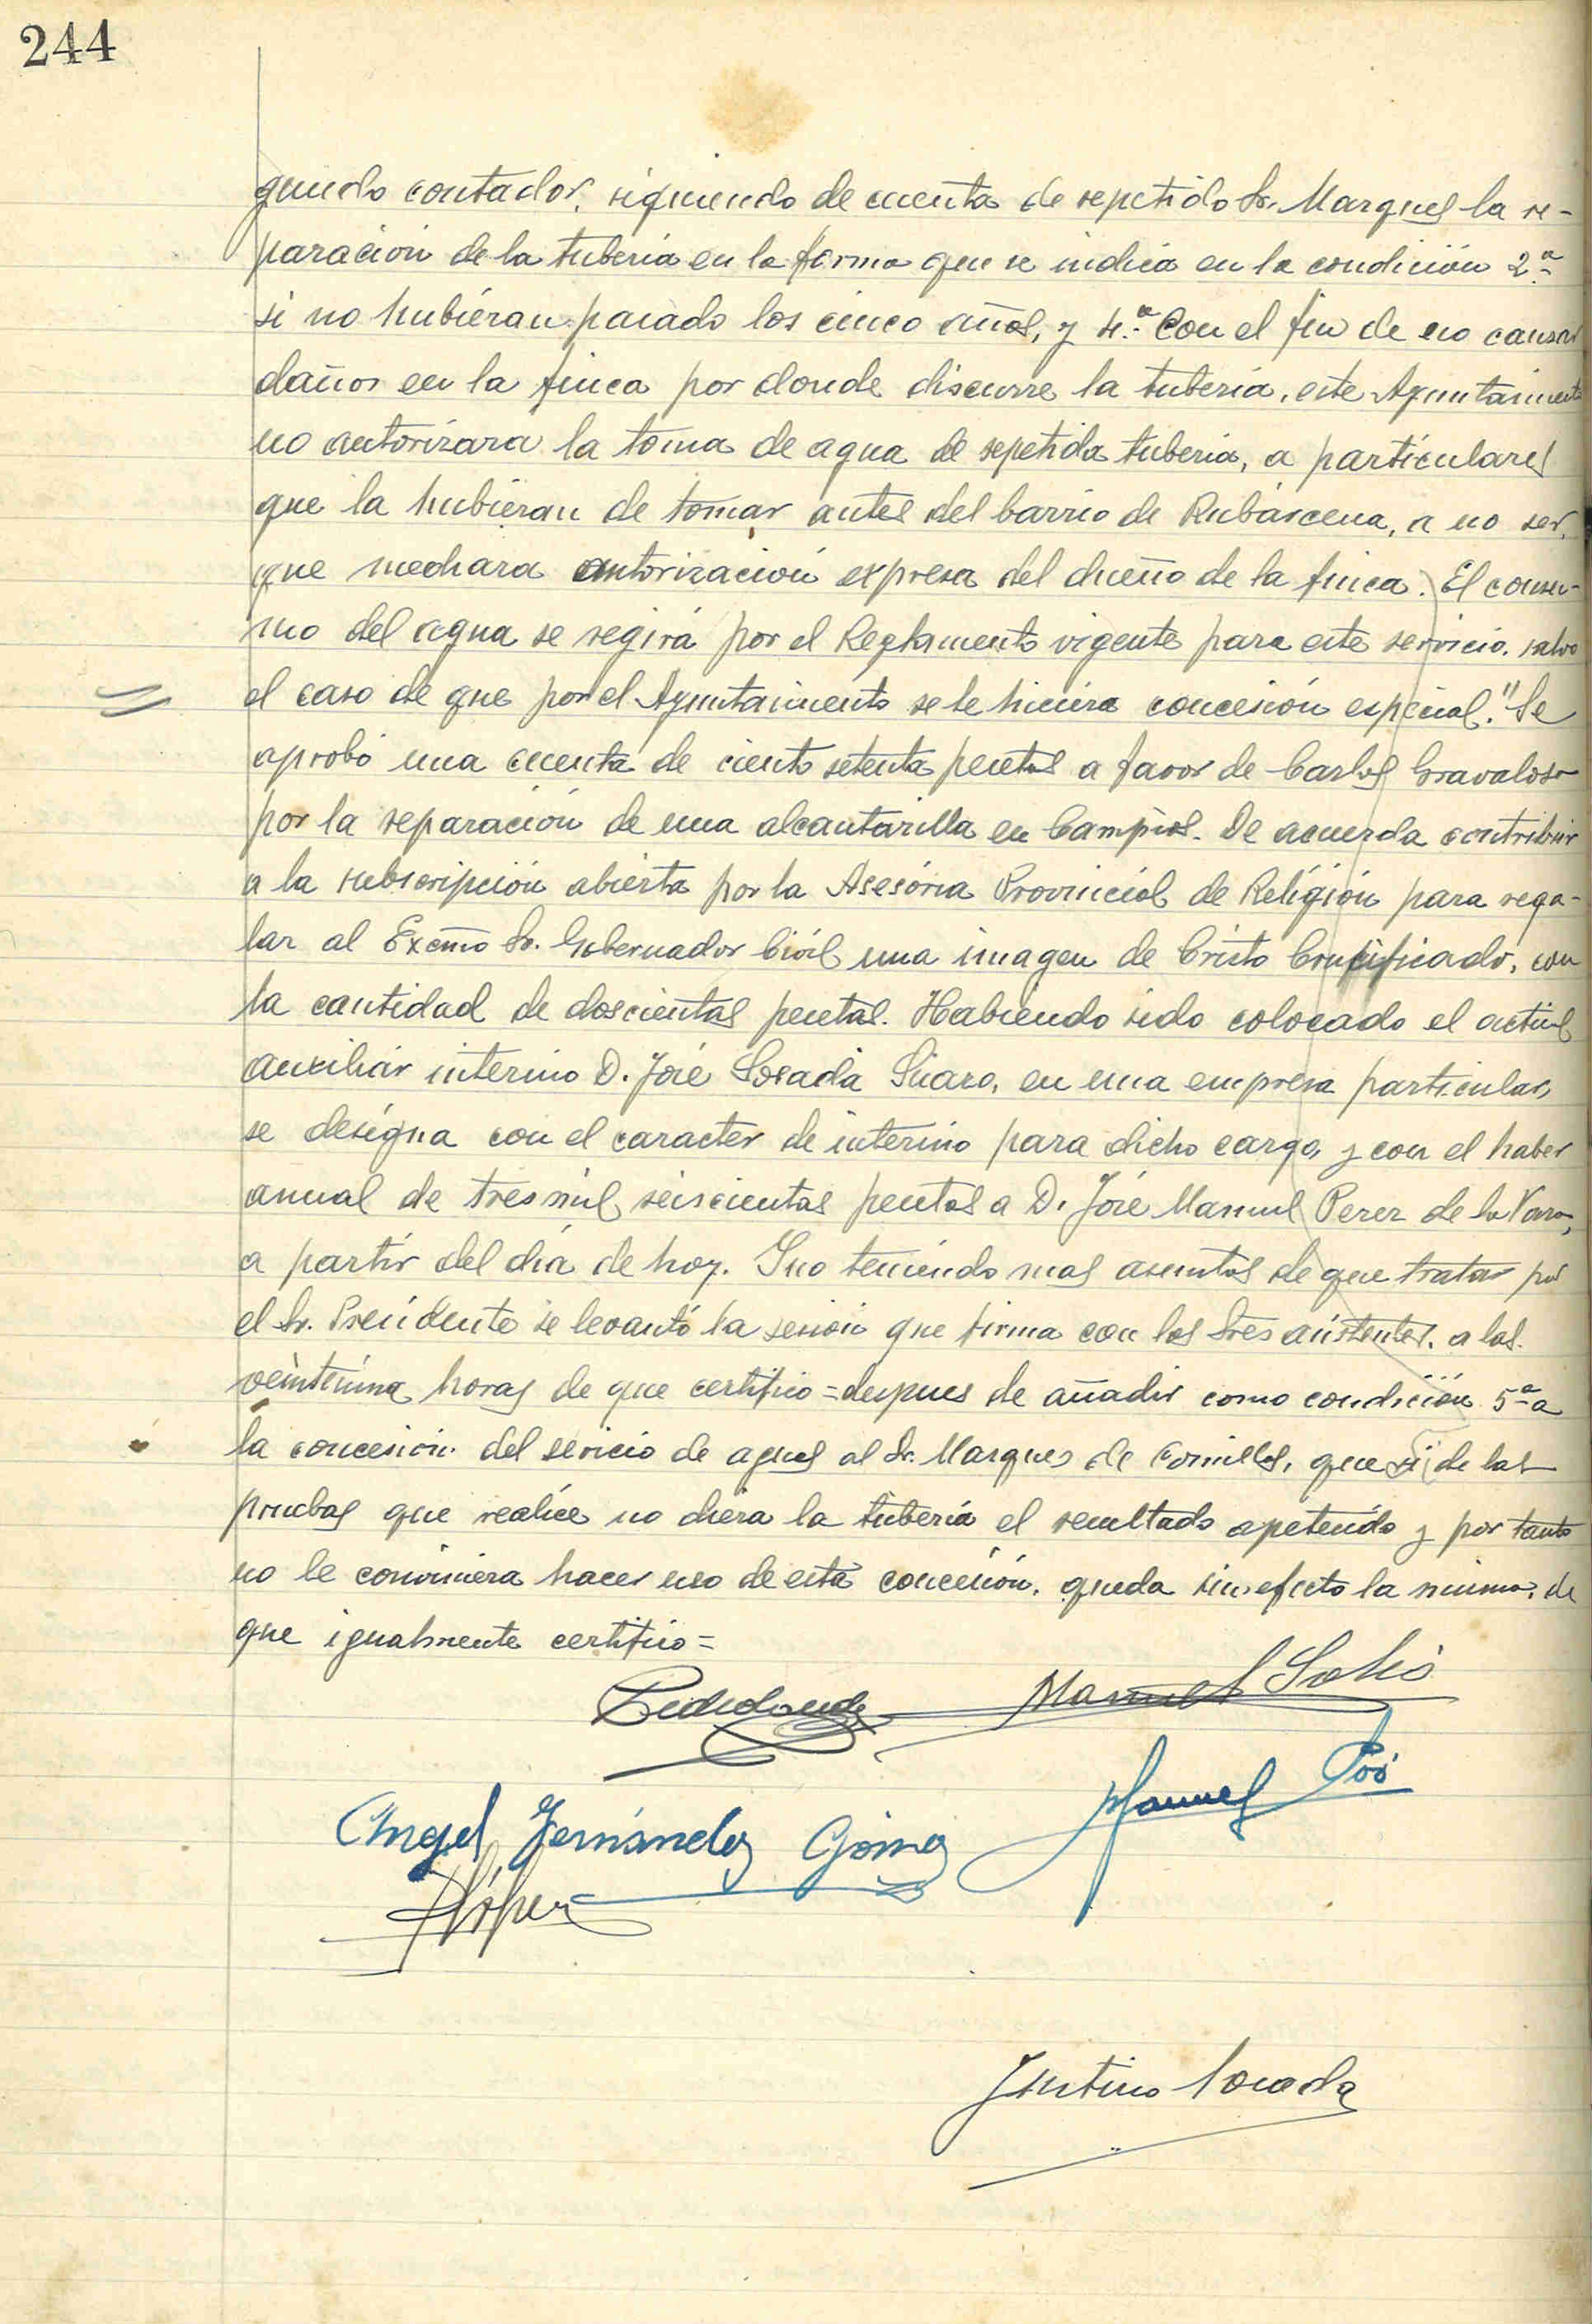 244
gundo contador, siguiendo de cuenta de repetido Sr. Marques la re-
paración de la tuberia en la forma que se indica en la condición 2.ª
si no hubieran pasado los cinco años, y 4.ª Con el fin de no causar
daños en la finca por donde discurre la tuberia, este Ayuntamiento
no autorizara la toma de agua de repetida tuberia, a particulares
que la hubieran de tomar antes del barrio de Rubárcena, a no ser,
que mediara autorización expresa del dueño de la finca. El consu-
mo del agua se regirá por el Reglamento vigente para este servicio, salvo
el caso de que por el Ayuntamiento se le hiciera concesión especial." Se
aprobó una cuenta de ciento setenta pesetas a favor de Carlos
por la reparación de una alcantarilla en Campios. Se acuerda contribuir
a la subscripción abierta por la Asesoria Provincial de Religión para rega-
lar al Excmo Sr. Gobernador Civil una imagen de Cristo Crucificado, con
la cantidad de doscientas pesetas. Habiendo sido colocado el actual
auxiliar interino D. José Losada en una empresa particular,
se designa con el caracter de interino para dicho cargo, y con el haber
anual de tres mil seiscientas pesetas a D. José Manuel Perez de la
a partir del dia de hoy. Y no teniendo mas asuntos de que tratar por
el Sr. Presidente se levantó la sesión que firma con los Sres asistentes, a las
veintiuna horas de que certifico = despues de añadir como condición 5ª a
la concesion del sevicio de aguas al Sr. Marques de Comillas, que si de las
pruebas que realice no diera la tuberia el resultado apetecido y por tanto
no le conviniera hacer uso de esta concesión, queda sin efecto la misma, de
que igualmente certifico =
Manuel Solis
Manuel Poó
Angel Fernández Gómez
López
Justino Losada